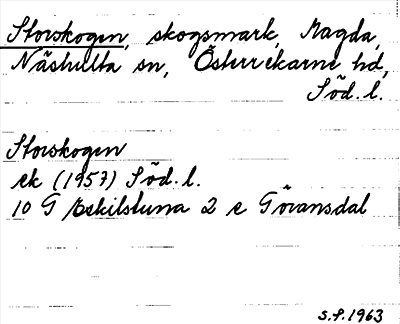 Storskogen, skogsmark, Magda,
Näshulta sn, Österrekarne hd,
Söd. l.
Storskogen
ek (1957) Söd. l.
10 G Eskilstuna 2 e Göransdal
S.f. 1963